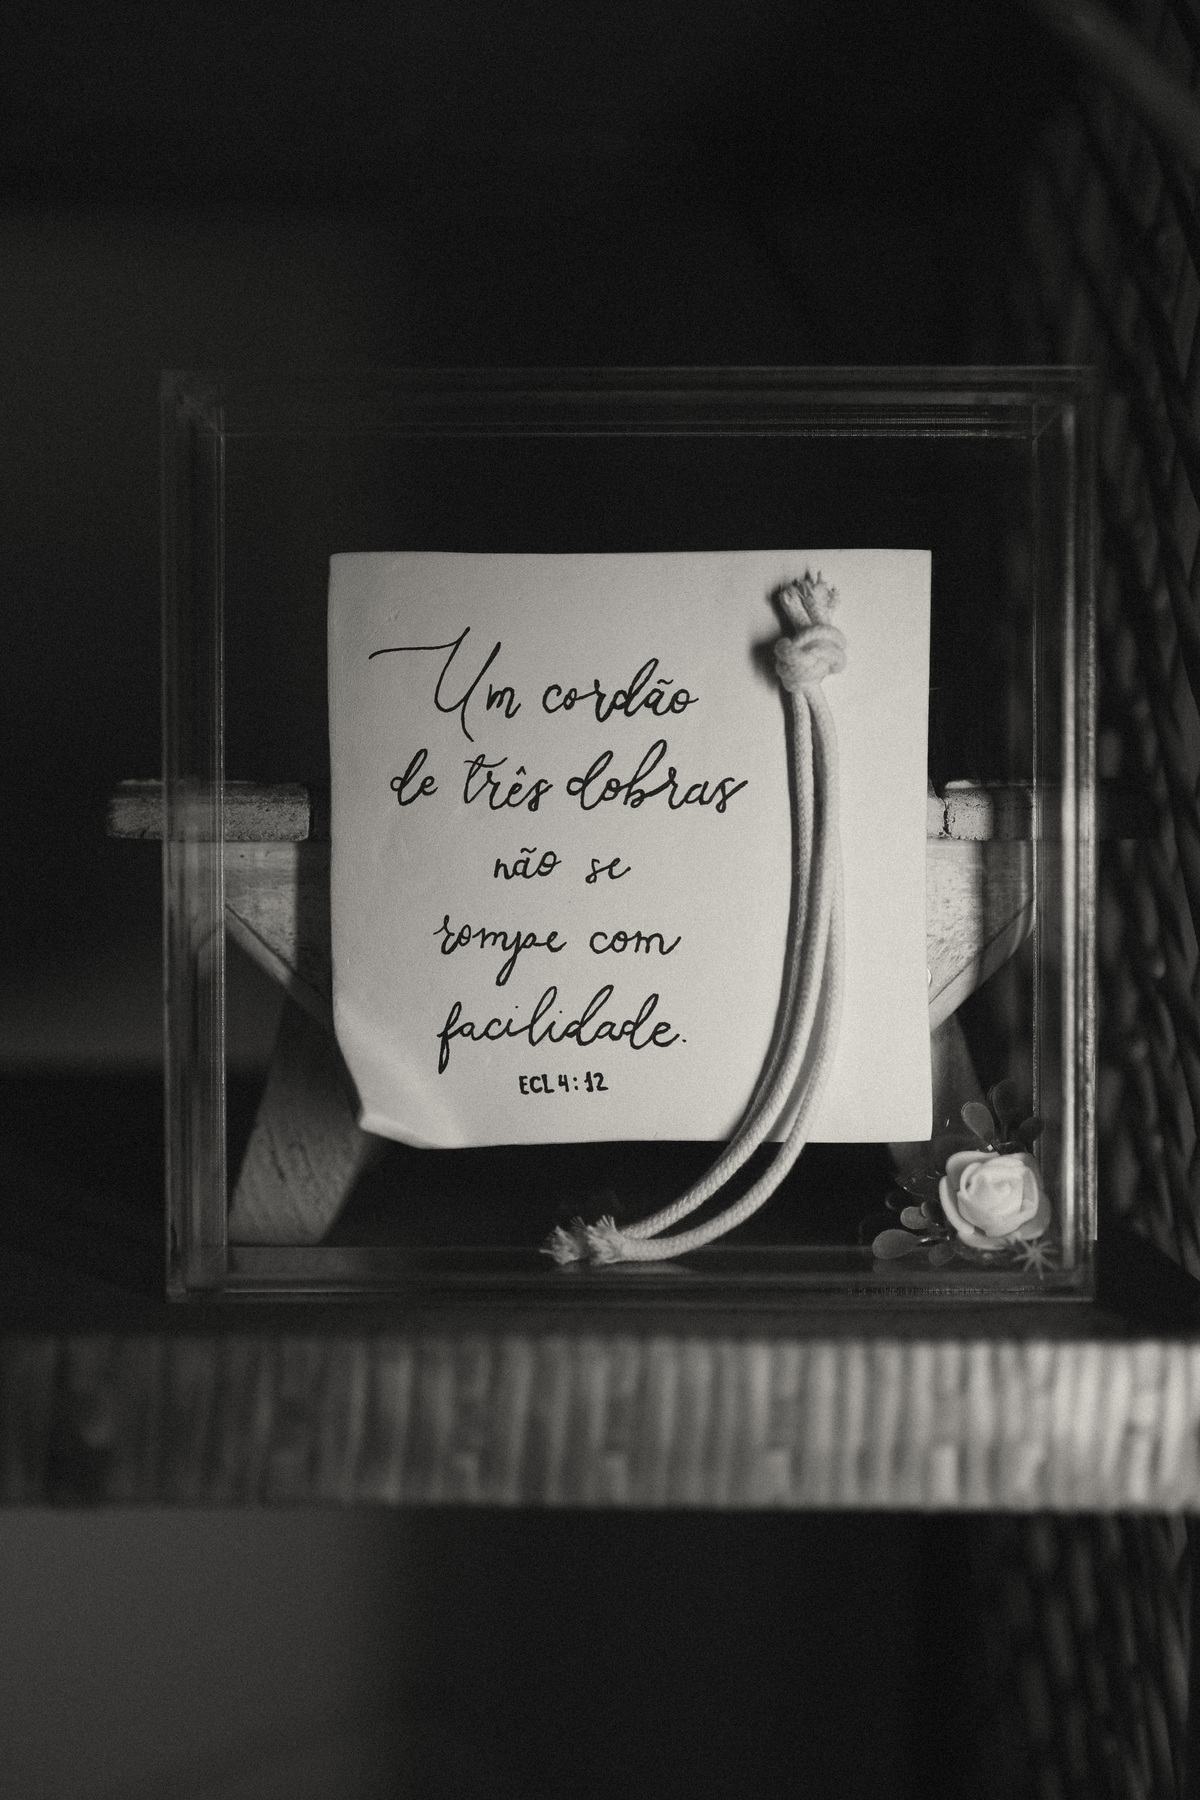 Um cordão
de três dobras
não se
rompe com
facilidade.
ECL 4:12